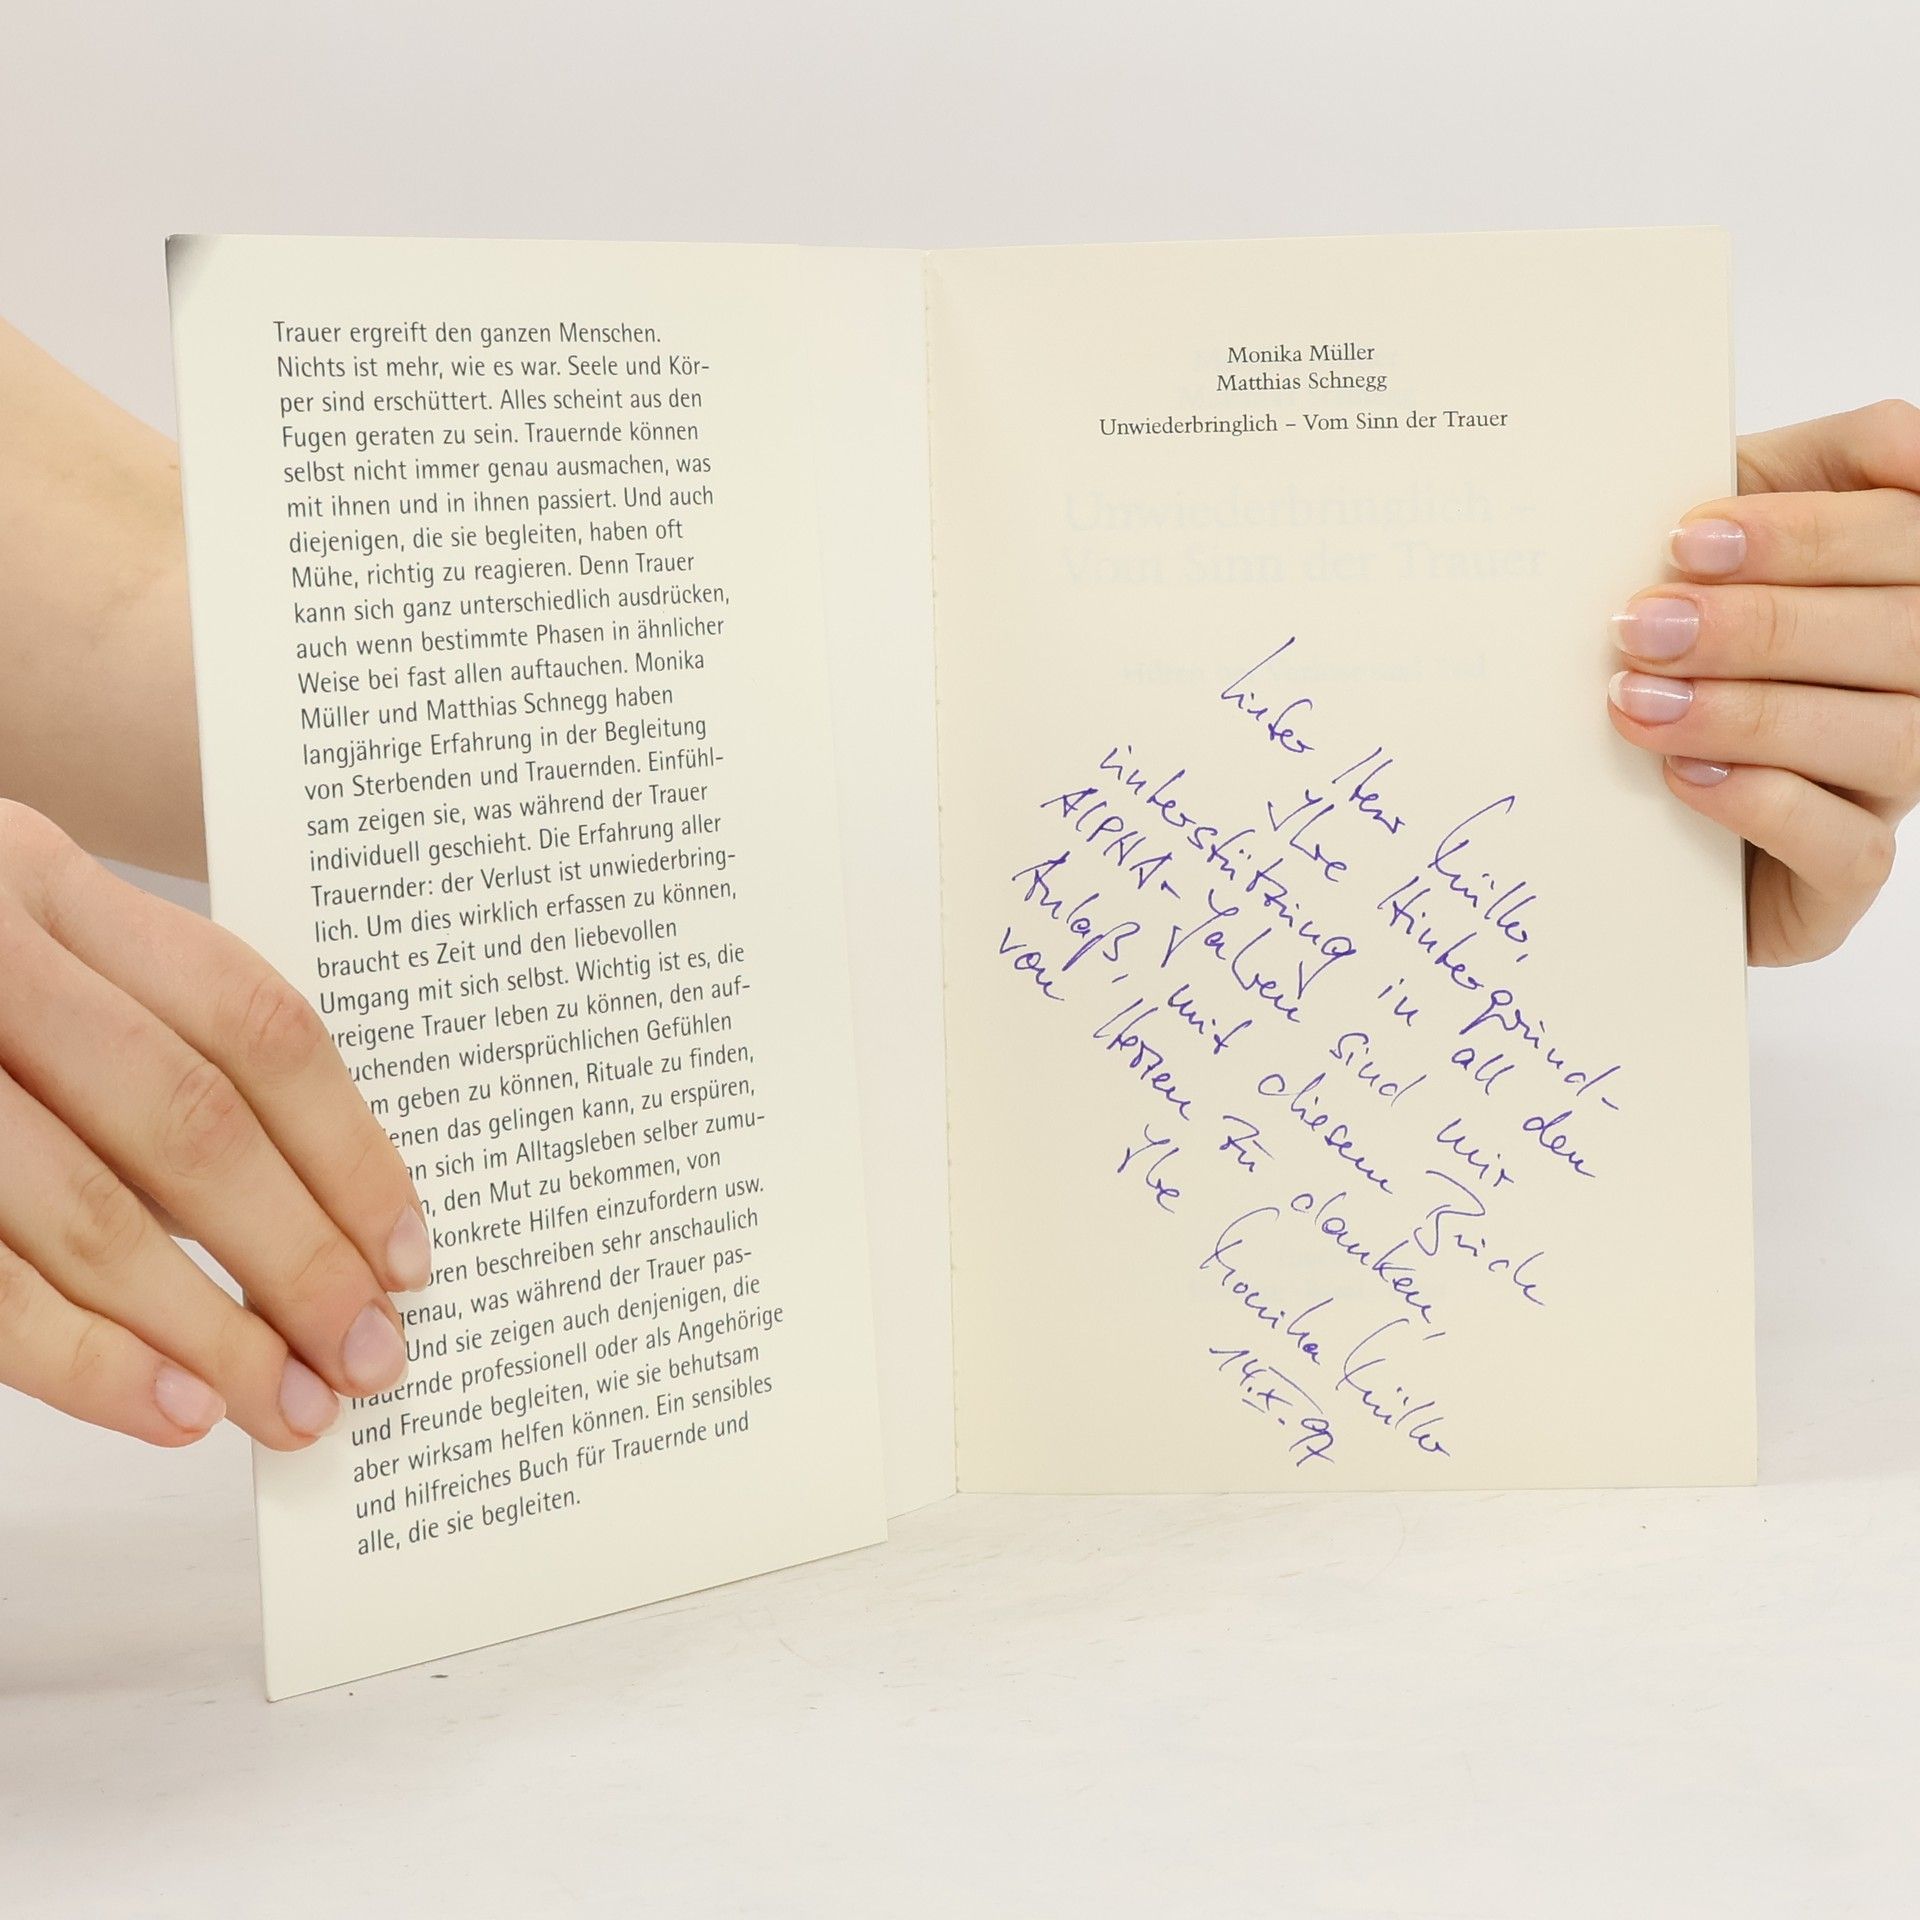 Trauer ergreift den ganzen Menschen.
Nichts ist mehr, wie es war. Seele und Kör-
per sind erschüttert. Alles scheint aus den
Fugen geraten zu sein. Trauernde können
selbst nicht immer genau ausmachen, was
mit ihnen und in ihnen passiert. Und auch
diejenigen, die sie begleiten, haben oft
Mühe, richtig zu reagieren. Denn Trauer
kann sich ganz unterschiedlich ausdrücken,
auch wenn bestimmte Phasen in ähnlicher
Weise bei fast allen auftauchen. Monika
Müller und Matthias Schnegg haben
langjährige Erfahrung in der Begleitung
von Sterbenden und Trauernden. Einfühl-
sam zeigen sie, was während der Trauer
individuell geschieht. Die Erfahrung aller
Trauernder: der Verlust ist unwiederbring-
lich. Um dies wirklich erfassen zu können,
braucht es Zeit und den liebevollen
Umgang mit sich selbst. Wichtig ist es, die
ureigene Trauer leben zu können, den auf-
uchenden widersprüchlichen Gefühlen
m geben zu können, Rituale zu finden,
enen das gelingen kann, zu erspüren,
an sich im Alltagsleben selber zumu-
n, den Mut zu bekommen, von
konkrete Hilfen einzufordern usw.
oren beschreiben sehr anschaulich
genau, was während der Trauer pas-
Und sie zeigen auch denjenigen, die
Trauernde professionell oder als Angehörige
und Freunde begleiten, wie sie behutsam
aber wirksam helfen können. Ein sensibles
und hilfreiches Buch für Trauernde und
alle, die sie begleiten.
Monika Müller
Matthias Schnegg
Unwiederbringlich – Vom Sinn der Trauer
Unwiederbringlich –
Vom Sinn der Trauer
Lieber Herr Müller,
Ihre Hintergrund-
unterstützung in all den
ALPHA-Jahren sind mir
Anlaß, mit diesem Buch
von Herzen zu danken,
Ihre Monika Müller
14.X.97